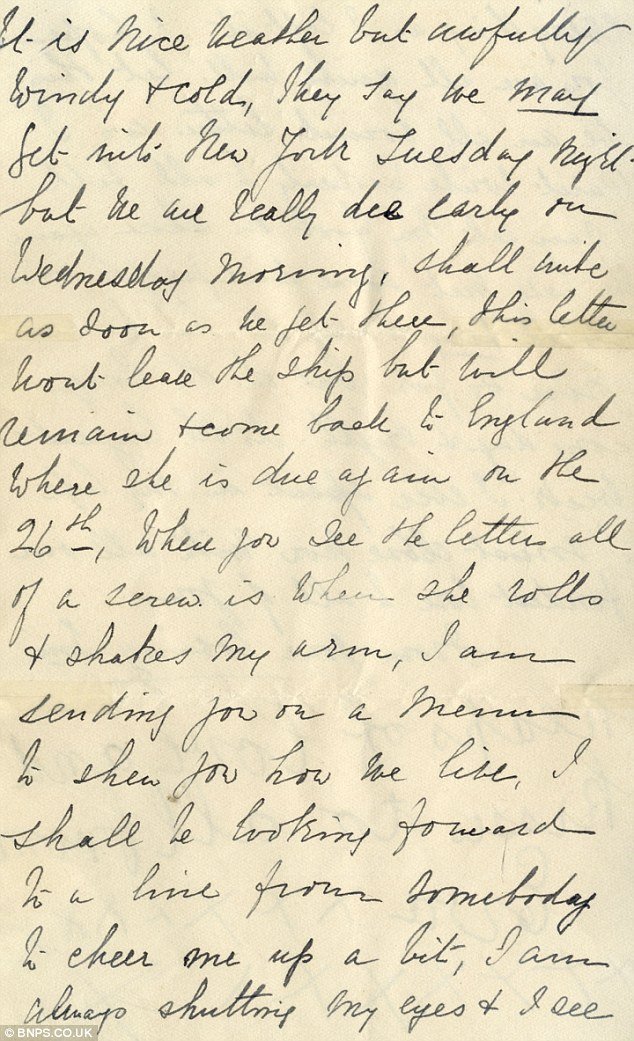 It is nice weather but awfully
windy & cold, They say we may
get into New York Tuesday night
but we are really due early on
Wednesday morning, shall write
as soon as we get there, this letter
wont leave the ship but will
remain & come back to England
where she is due again on the
26th, Where you see the letter all
of a screw is when she rolls
& shakes my arm, I am
sending you on a menu
to shew you how we live, I
shall be looking forward
to a line from somebody
to cheer me up a bit, I am
always shutting my eyes & I see
© BNPS.CO.UK